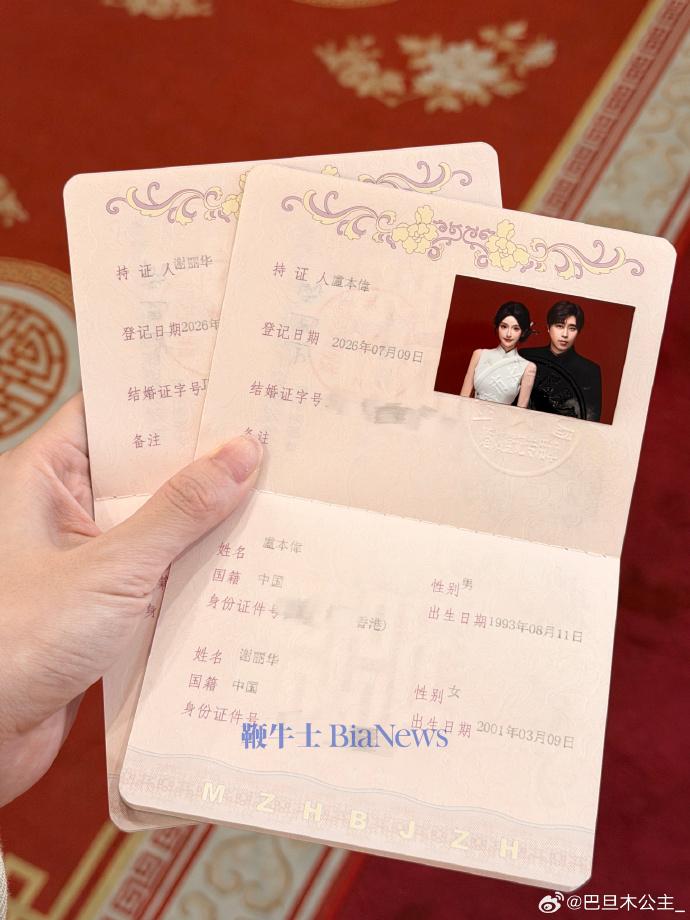 持证人谢丽华
登记日期2026年
结婚证字号J
备注
持证人盧本偉
登记日期 2026年07月09日
结婚证字号
备注
姓名 盧本偉
国籍 中国 性别 男
身份证件号 香港) 出生日期 1993年08月11日
姓名 谢丽华
国籍 中国 性别 女
身份证件号 出生日期 2001年03月09日
鞭牛士 BiaNews
MZHBJZH
@巴旦木公主_